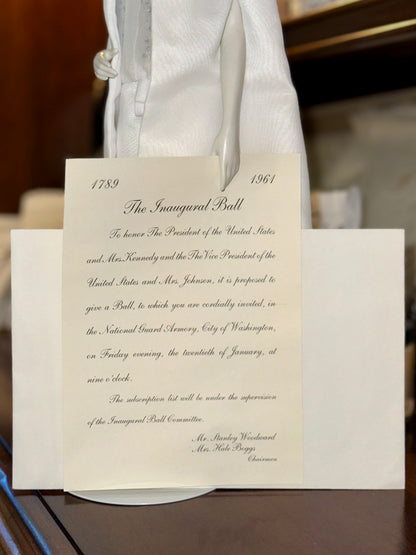 1789 1961
The Inaugural Ball
To honor The President of the United States
and Mrs. Kennedy and the The Vice President of the
United States and Mrs. Johnson, it is proposed to
give a Ball, to which you are cordially invited, in
the National Guard Armory, City of Washington,
on Friday evening, the twentieth of January, at
nine o'clock.
The subscription list will be under the supervision
of the Inaugural Ball Committee.
Mr. Stanley Woodward
Mrs. Hale Boggs
Chairmen